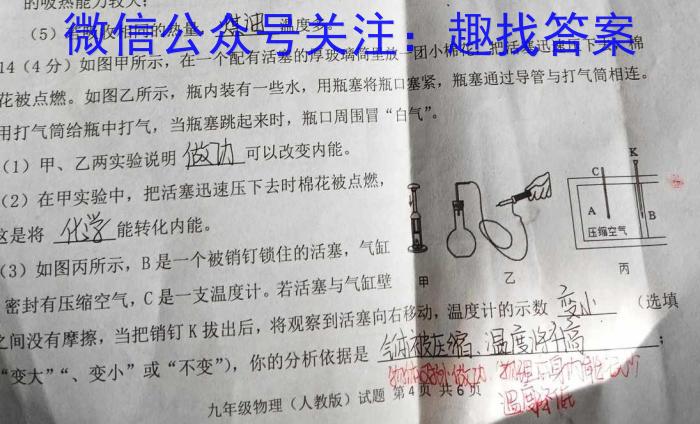 的吸热能力较大；
微信公众号关注：趣找答案
14（4分）如图甲所示，在一个配有活塞的厚玻璃筒里放一团小棉花，把活塞迅速压下去，棉
花被点燃。如图乙所示，瓶内装有一些水，用瓶塞将瓶口塞紧，瓶塞通过导管与打气筒相连。
用打气筒给瓶中打气，当瓶塞跳起来时，瓶口周围冒“白气”。
（1）甲、乙两实验说明 做功 可以改变内能。
（2）在甲实验中，把活塞迅速压下去时棉花被点燃，
这是将 化学 能转化内能。
（3）如图丙所示，B是一个被销钉锁住的活塞，气缸
密封有压缩空气，C是一支温度计。若活塞与气缸壁
K
C
A
B
压缩空气
甲
乙
丙
之间没有摩擦，当把销钉K拔出后，将观察到活塞向右移动，温度计的示数 变小 （选填
“变大”“、变小”或“不变”），你的分析依据是 气体被压缩、温度将升高 ；
温度降低
九年级物理（人教版）试题 第4页 共6页